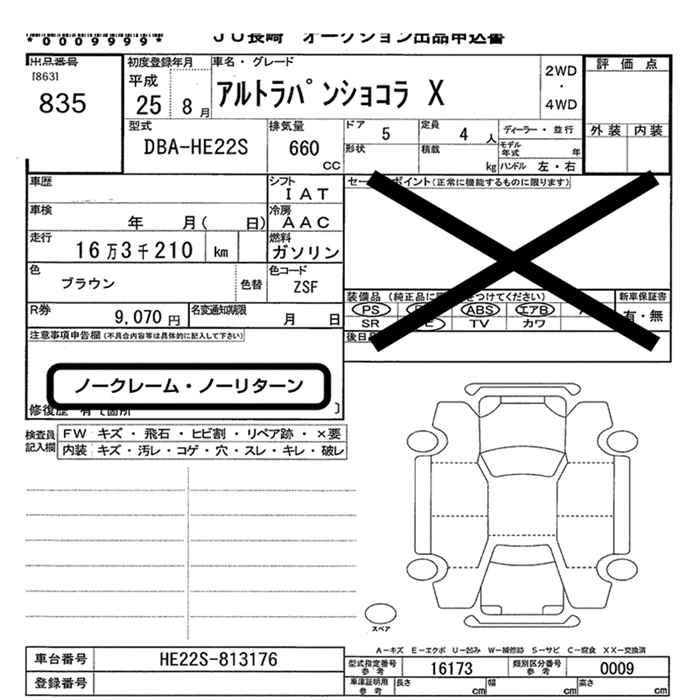 *0009999*
JU長崎 オークション出品申込書
出品番号 初度登録年月 車名・グレード 評価点
[863] 平成 2WD
835 25 8月 アルトラパンショコラ X ・
4WD
型式 排気量 ドア 5 定員 4人 ディーラー・並行 外装 内装
DBA-HE22S 660 CC 形状 積載 kg モデル年式 年
ハンドル 左・右
車歴 シフト IAT セー ポイント(正常に機能するものに限ります)
車検 年 月( 日) 冷房 AAC
走行 16万3千210 km 燃料 ガソリン
色 ブラウン 色替 色コード ZSF
装備品 (純正品に つけてください) 新車保証書
R券 9,070円 名変通知期限 月 日 PS ABS エアB A 有・無
SR E TV カワ
注意事項申告欄(不具合内容等は具体的に記入して下さい) 後日
ノークレーム・ノーリターン
修復歴 有 て箇所 〕
検査員 FW キズ・飛石・ヒビ割・リペア跡・×要
記入欄 内装 キズ・汚レ・コゲ・穴・スレ・キレ・破レ
スペア
A-キズ E-エクボ U-凹み W-補修跡 S-サビ C-腐食 XX-交換済
車台番号 HE22S-813176 型式指定番号 参考 16173 類別区分番号 参考 0009
登録番号 車庫証明用 参考 長さ cm 幅 cm 高さ cm